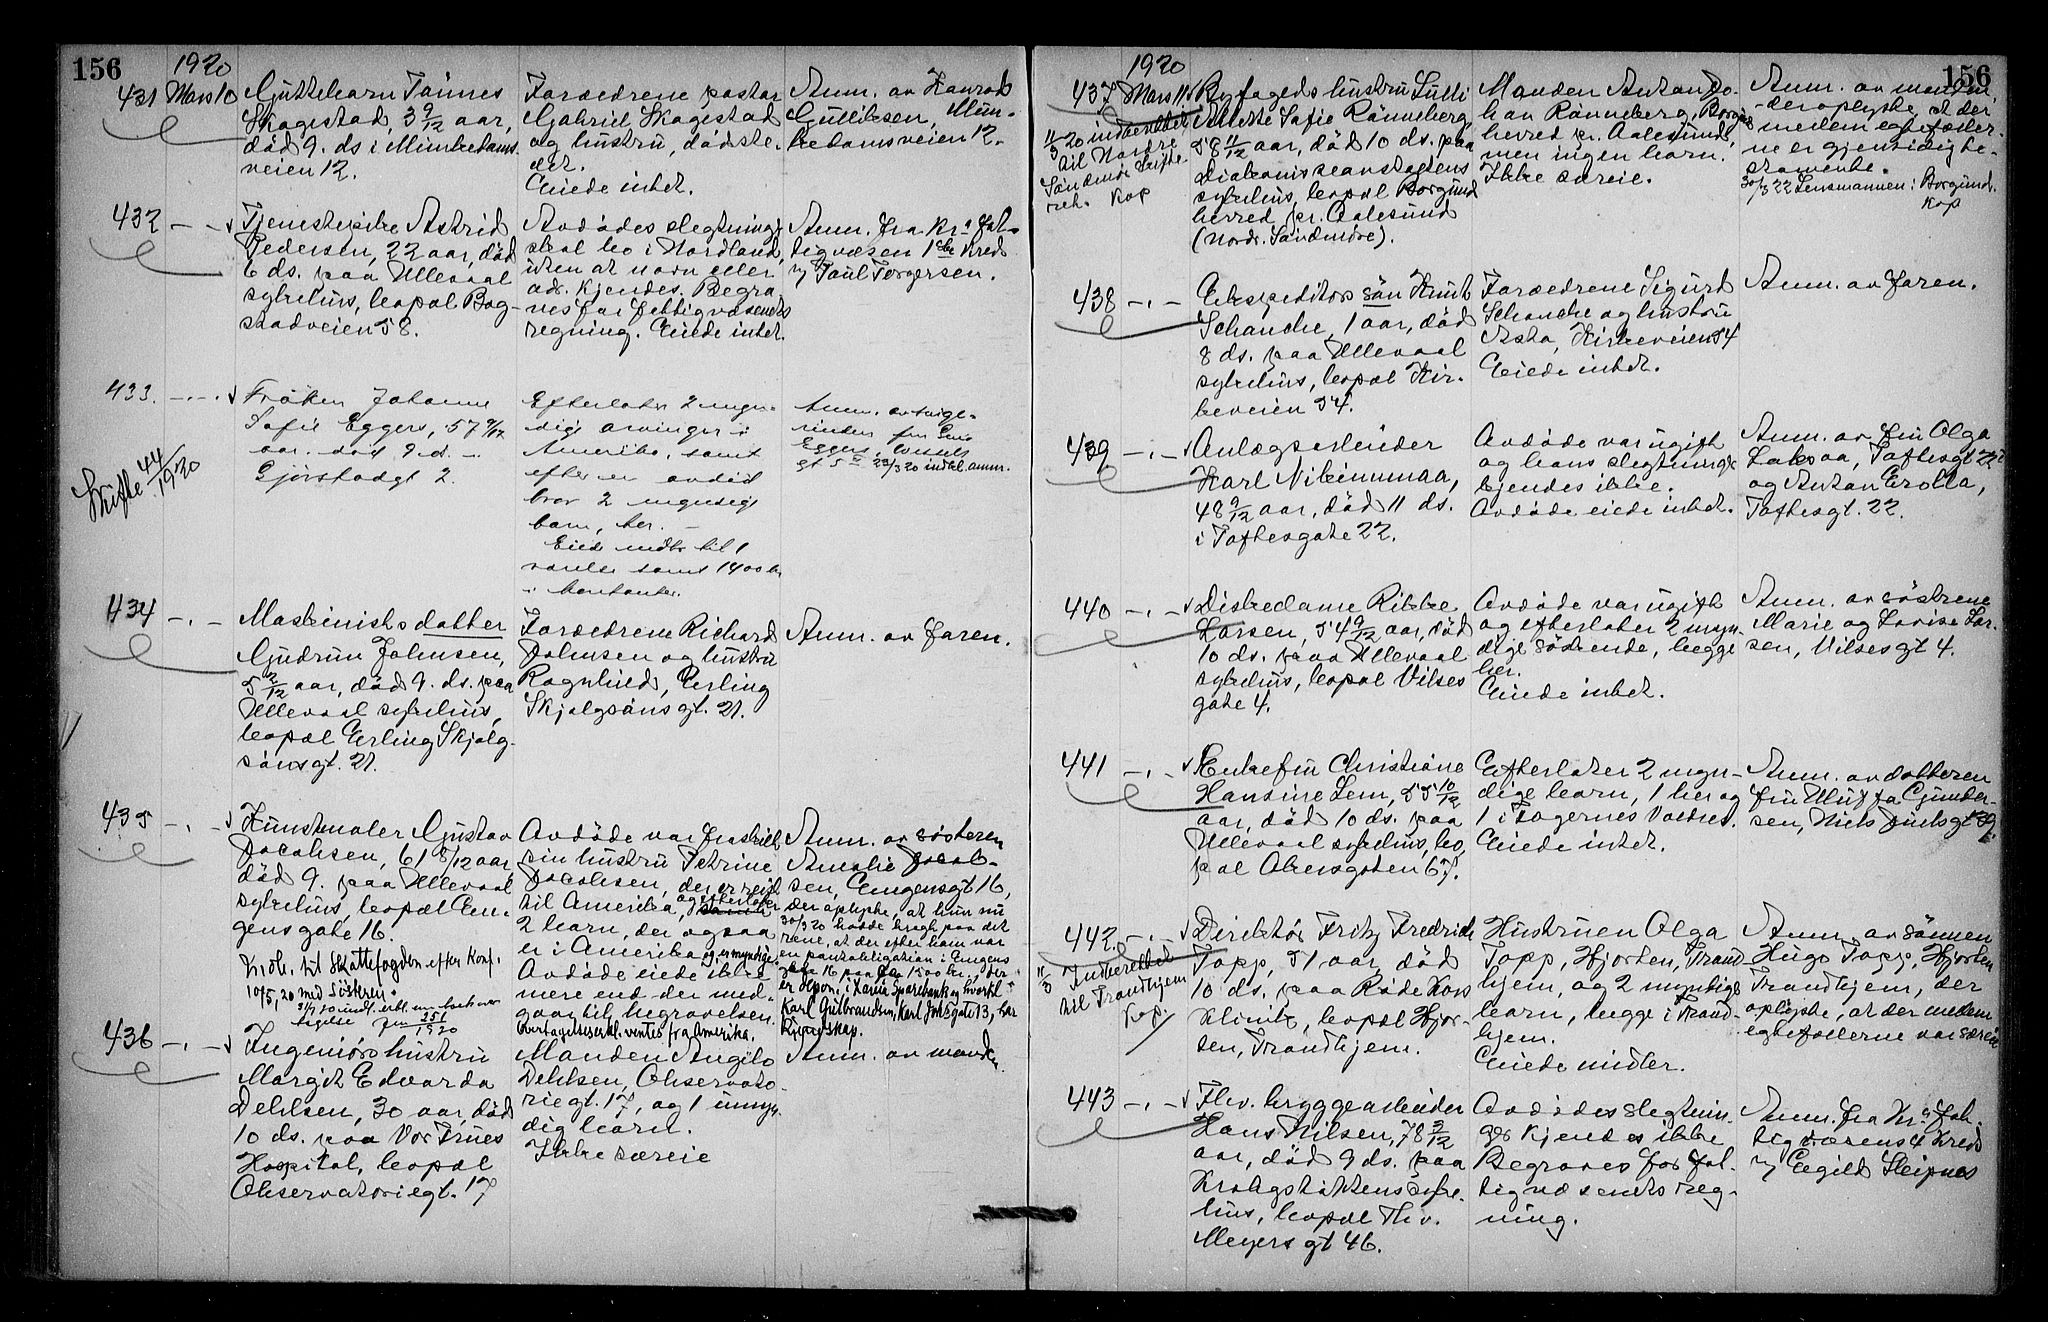 156
1920
431 Mars 10 Guttebarn Tønnes
Skagestad, 3 9/12 aar,
død 9. ds i Munkedams-
veien 12.
Forældrene pastor
Gabriel Skagestad
og hustru, dødste-
det.
Eiede intet.
Anm. av Konrad
Gulliksen, Mun-
kedamsveien 12.
432 — — Tjenestepike Astrid
Pedersen, 22 aar, død
6 ds. paa Ullevaal
sykehus, bopæl Bog-
stadveien 58.
Avdødes slegtninge
skal bo i Nordland,
uten at navn eller
adr. kjendes. Begra-
ves for fattigvæsenets
regning. Eiede intet.
Anm. fra Kra fat-
tigvæsen 1ste kreds
v/ Paul Torgersen.
433. —.—. Frøken Johanne
Sofie Eggers, 57 9/12
aar. død 9. d. —
Gjørstadgt 2.
Skifte 44/1920
Efterlater 2 myn-
dige arvinger i
Amerika, samt
efter en avdød
bror 2 myndige
barn, her. —
Eiede indbo til 1
værelse samt 1400 kr
i kontanter.
Anm. av svige-
rinden fru
Eggers, Wessels
gt 5 23/3 20 indk. anm.
434 —.— Maskinists datter
Gudrun Johnsen,
5 2/12 aar, død 9. ds. paa
Ullevaal sykehus,
bopæl Erling Skjalg-
sønsgt. 21.
Forældrene Richard
Johnsen og hustru
Ragnhild, Erling
Skjalgsøns gt. 21.
Anm. av faren.
435 —.— Kunstmaler Gustav
Jacobsen, 61 8/12 aar,
død 9. paa Ullevaal
sykehus, bopæl Eu-
gens gate 16.
til Skattefogden efter Konf.
10/5, 20 med søsteren.
351/1920
Avdøde var fraskilt
sin hustru Petrine
Jacobsen, der er reist
til Amerika, og efterlater
2 barn, der ogsaa
er i Amerika og er myndige.
Avdøde eiede ikke
mere end der med-
gaar til begravelsen.
Overtagelseserkl. ventes fra Amerika.
Anm. av søsteren
Amalie Jacob-
sen, Eugensgt 16,
der oplyste, at hun nu
30/3 20 hadde bragt paa det
rene, at der efter ham var
en pantobligation i Eugens
gate 16 paa 1500 kr., der
er depon. i Sparebank, hvortil
Karl Gulbrandsen, Karl Johs gate 13, har
kjendskap.
436 —.— Ingeniørs hustru
Margit Edvarda
Dehlsen, 30 aar, død
10 ds. paa Vor Frues
Hospital, bopæl
Observatoriegt. 17
Manden Angelo
Dehlsen, Observato-
riegt. 17, og 1 umyn-
dig barn.
Ikke særeie
Anm. av manden.
156
1920
437 Mars 11. Byfogeds hustru Lulli
Anette Sofie Rønneberg
58 11/12 aar, død 10 ds. paa
Diakonisseanstaltens
sykehus, bopæl Borgund
herred pr. Aalesund
(Nordr. Søndmøre).
11/3 20 indberettet
til Nordre
Søndmøre Skifte-
ret. Kop
Manden Anton Jo-
han Rønneberg, Borgund
herred pr. Aalesund,
men ingen barn.
Ikke særeie.
Anm. av manden,
der oplyste, at der
mellem egtefæller-
ne er gjensidig te-
stamente.
30/3 22 Lensmannen i Borgund.
Kop
438 —.— Ekspeditørs søn Knut
Schanche, 1 aar, død
8 ds. paa Ullevaal
sykehus, bopæl Kir-
keveien 54.
Forældrene Sigurd
Schanche og hustru
Asta, Kirkeveien 54
Eiede intet.
Anm. av faren.
439 —.— Anlægsarbeider
Karl Nikinmaa,
48 9/12 aar, død 11 ds.
i Toftesgate 22.
Avdøde var ugift
og hans slegtninger
kjendes ikke.
Avdøde eiede intet.
Anm. av fru Olga
Laksaa, Toftesgt 22
og Anton Erolla,
Toftesgt. 22.
440 —.— Diskedame Rikke
Larsen, 54 9/12 aar, død
10 ds. paa Ullevaal
sykehus, bopæl Vilses
gate 4.
Avdøde var ugift
og efterlater 2 myn-
dige søskende, begge
her.
Eiede intet.
Anm. av søstrene
Marie og Lovise Lar-
sen, Vilsesgt 4.
441 —.— Enkefru Christiane
Hansine Lem, 55 10/12
aar, død 10 ds. paa
Ullevaal sykehus, bo-
pæl Akersgaten 67.
Efterlater 2 myn-
dige barn, 1 her og
1 i Fagernes Valdres.
Eiede intet.
Anm. av datteren
fru Gunder-
sen, Niels Juelsgt 39
442. —.— Direktør Fritz Fredrich
Topp, 51 aar, død
10 ds. paa Røde Kors
Klinik, bopæl Hjor-
ten, Trondhjem.
11/3 Indberettet
til Trondhjem
Kop.
Hustruen Olga
Topp, Hjorten, Trond-
hjem, og 2 myndige
barn, begge i Trond-
hjem.
Eiede midler.
Anm. av sønnen
Hugo Topp, Hjorten
Trondhjem, der
oplyste, at der mellem
egtefællerne var særeie
443 —.— Fhv. bryggearbeider
Hans Nilsen, 78 3/12
aar, død 9 ds. paa
Krohgstøttens syke-
hus, bopæl Thv.
Meyers gt 46.
Avdødes slegtnin-
ger kjendes ikke
Begraves for fat-
tigvæsenets reg-
ning.
Anm. fra Kra fat-
tigvæsens 4 kreds
v/ Egild Sleipnes